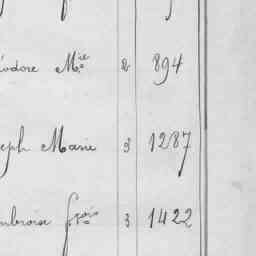 éodore Mie 2 894
eph Marie 3 1287
mbroise fçois 3 1422